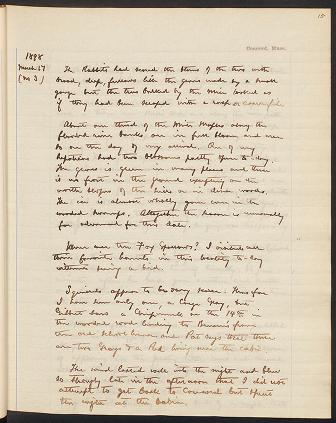 15
Concord, Mass.
1898
March 17
(No 3)
The Rabbits had scored the stems of the trees with
broad, deep, furrows like the gouges made by a small
gouge but the trees barked by the Mice looked as
if they had been scraped with a rasp or coarse file.
About one third of the White Maples along the
flooded river banks are in full bloom and were
so on the day of my arrival. One of my
Hepaticas had two blossoms partly open to-day.
The grass is green in many places and there
is no frost in the ground excepting on the
north slopes of the hills or in dense woods.
The ice is almost wholly gone even in the
wooded swamps. Altogether the season is unusually
far advanced for this date.
Where are the Fox Sparrows? I visited all
their favorite haunts in this locality to-day
without seeing a bird.
Squirrels appear to be very scarce. Thus far
I have seen only one, a large Gray, but
Gilbert saw a Chipmunk on the 14th in
the wooded road leading to Bensen's from
the old school house and Pat says that there
are two Grays & a Red living near the cabin.
The wind lasted well into the night and blew
so strongly late in the afternoon that I did not
attempt to get back to Concord but spent
the night at the Cabin.